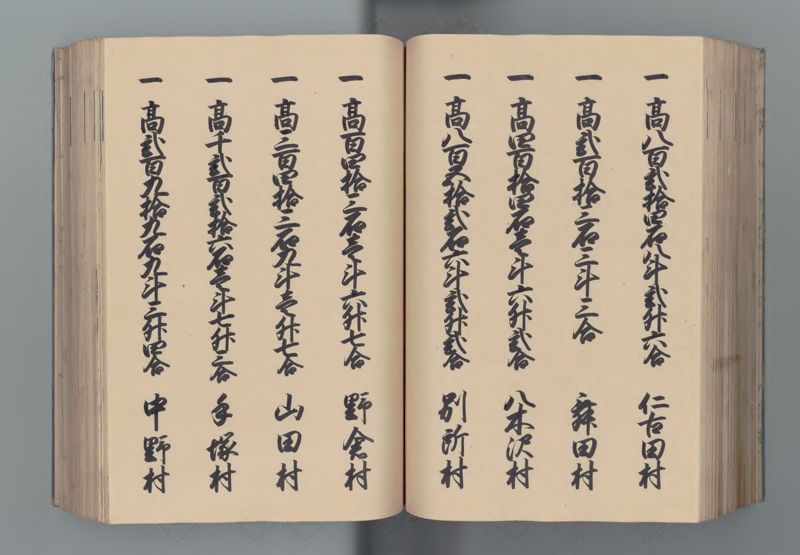 一 高八百弐拾四石八斗弐升六合 仁古田村
一 高弐百拾三石三斗三合 舞田村
一 高四百拾四石壱斗六升弐合 八木沢村
一 高八百八拾弐石六斗弐升弐合 別所村
一 高百四拾三石壱斗六升七合 野倉村
一 高三百四拾三石九斗壱升七合 山田村
一 高十弐百弐拾六石壱斗七升三合 手塚村
一 高弐百九拾九石九斗三升四合 中野村